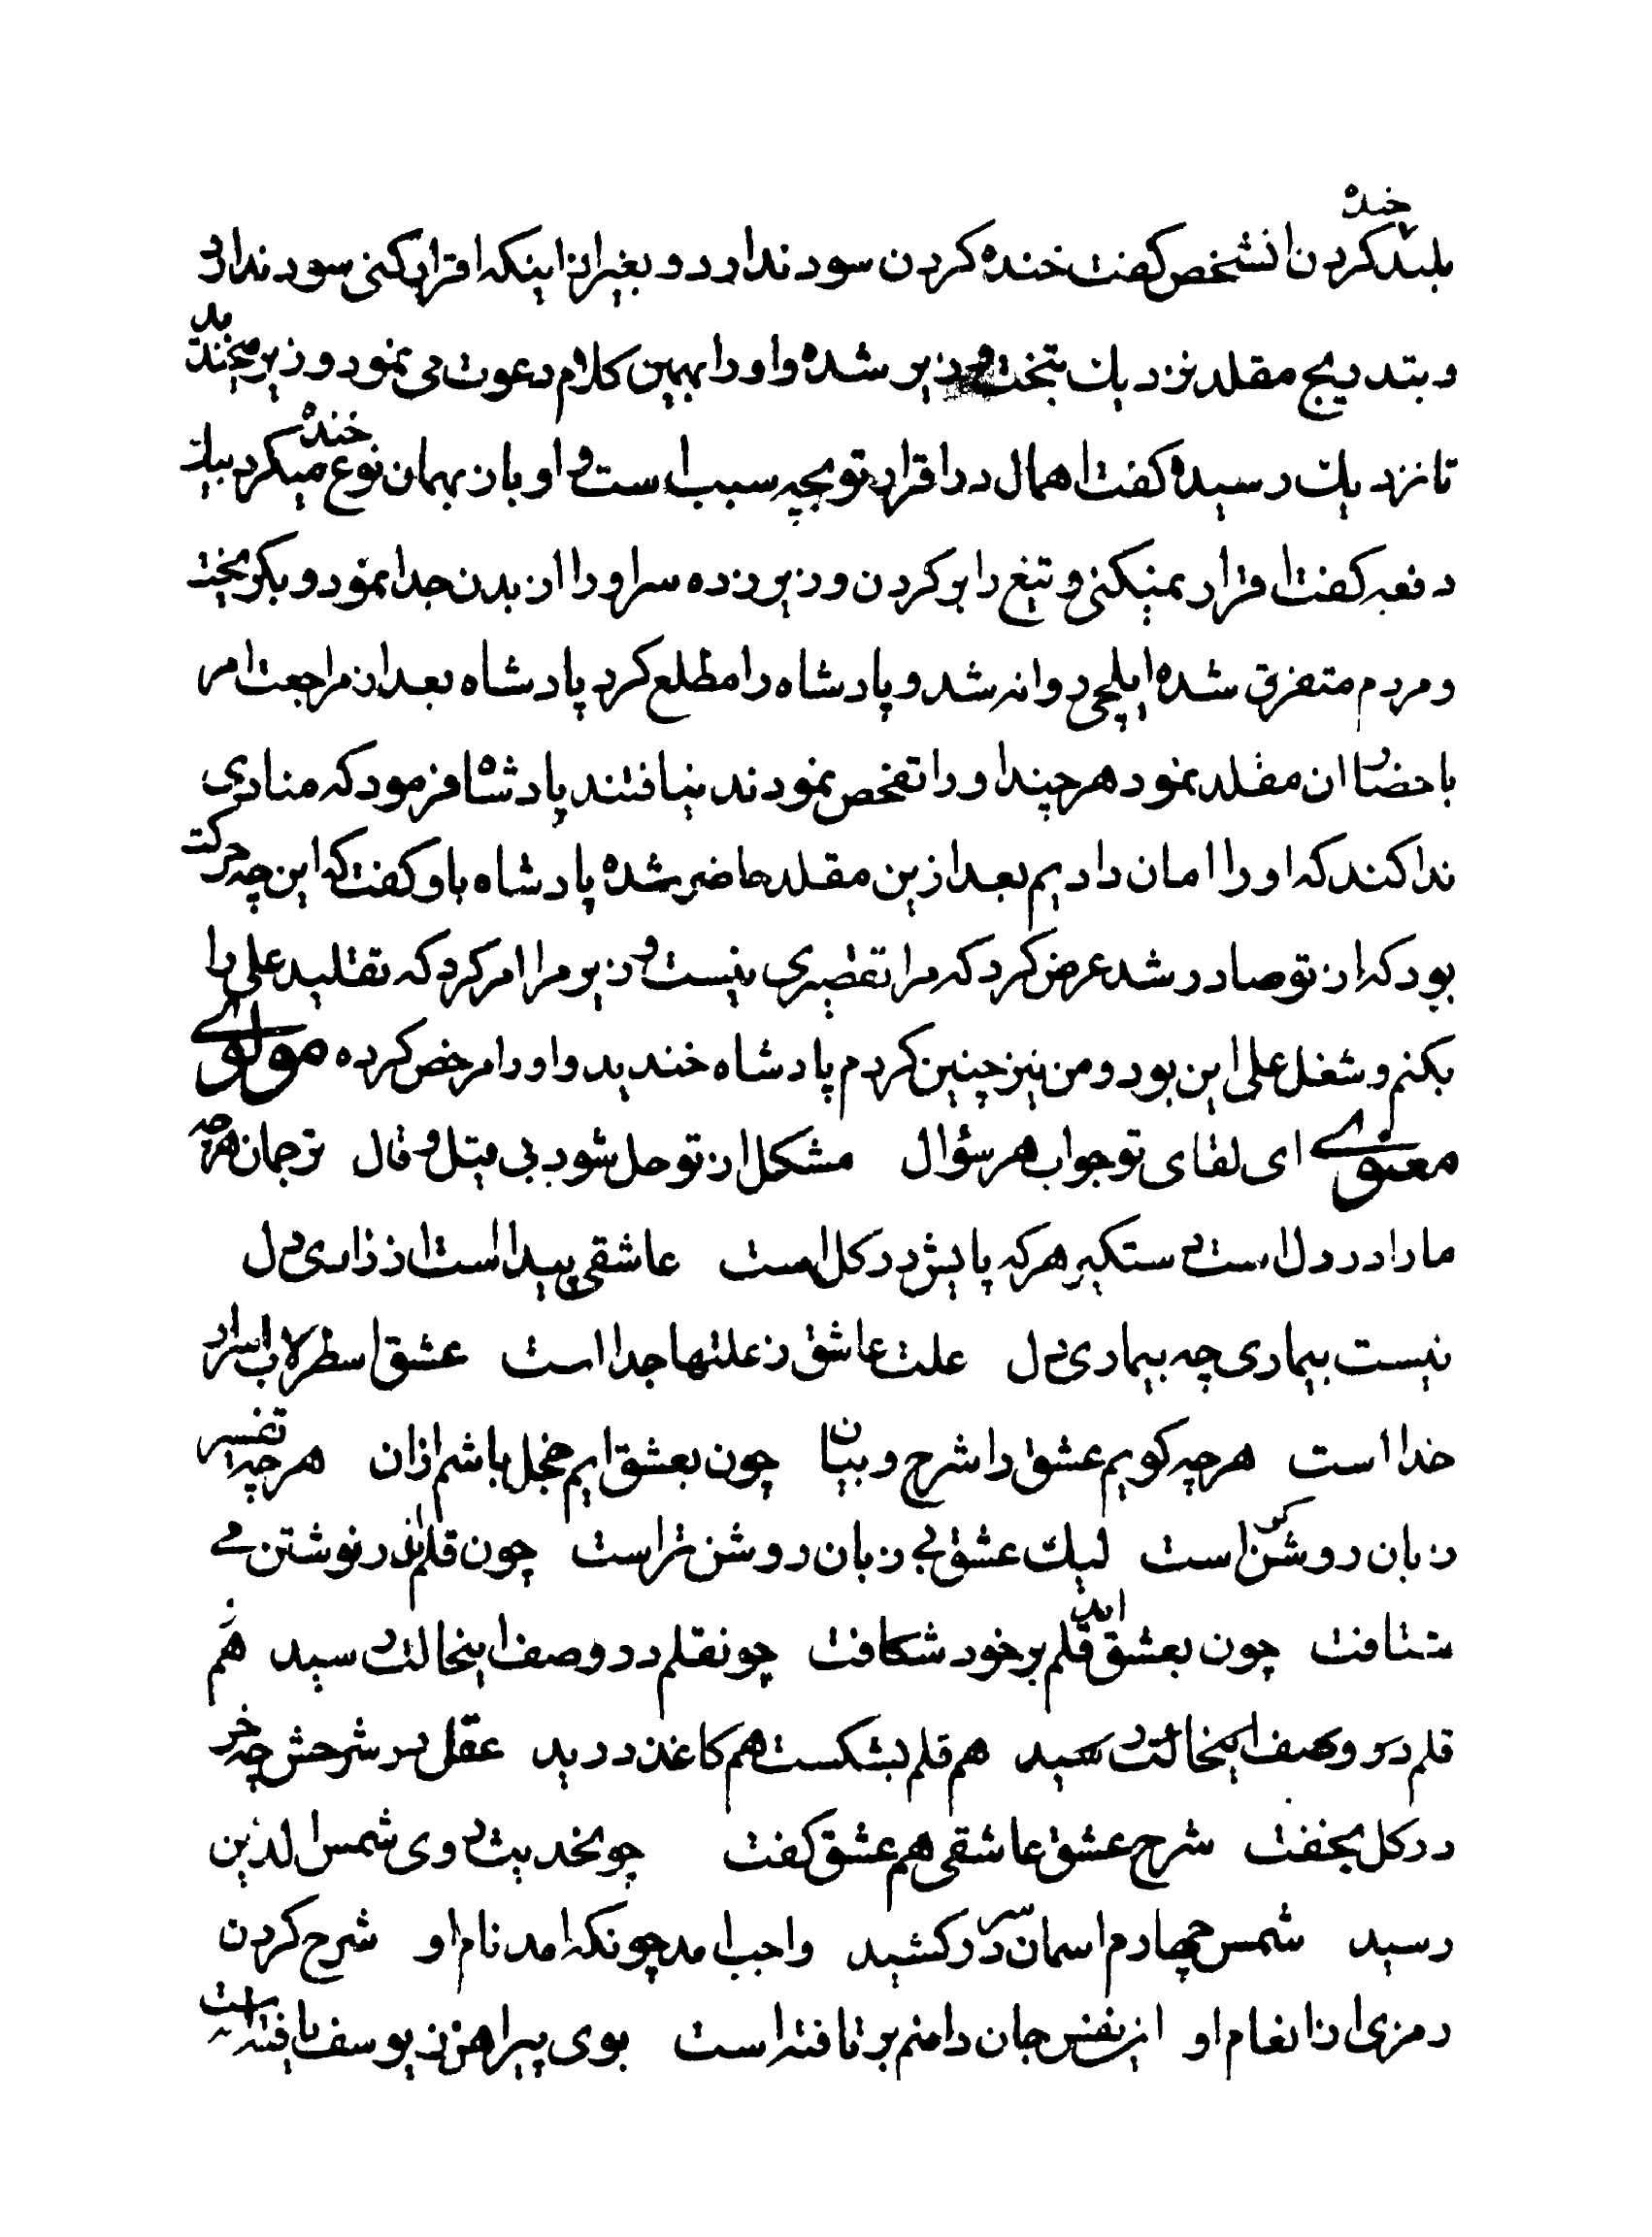 بلند خنده کردن انشخص کفت خنده کردن سود ندارد و بغیر از اینکه اقرار کنی سود ندارد
و بتدریج مقلد نزدیك بتخت وزیر شده و او را بهمین کلام دعوت می نمود و زیر میخندید
تا نزدیك رسیده کفت اهمال در اقرار تو بچه سبب است و او باز بهمان نوع خنده میکرد بیك
دفعه کفت اقرار نمیکنی و تیغ را بر کردن وزیر زده سر او را از بدن جدا نمود و بکریخت
و مردم متفرق شده ایلچی روانه شد و پادشاه را مطلع کرد پادشاه بعد از مراجعت امر
باحضار ان مقلد نمود هر چند او را تفحص نمودند نیافتند پادشاه فرمود که منادی
ندا کند که او را امان دادیم بعد ازین مقلد حاضر شده پادشاه باو کفت که این چه حرکت
بود که از تو صادر شد عرض کرد که مرا تقصیری نیست وزیر مرا امر کرد که تقلید علی را
بکنم و شغل علی این بود و من نیز چنین کردم پادشاه خندید و او را مرخص کرده مولوی
معنوی ای لقای تو جواب هر سؤال مشکل از تو حل شود بی قیل و قال ترجمان هر چه
ما را در دل است دستکیر هر که پایش در کل است عاشقی پیدا است از زاری دل
نیست بیماری چه بیماری دل علت عاشق ز علتها جدا است عشق اسطرلاب اسرار
خدا است هر چه کویم عشق را شرح و بیان چون بعشق ایم خجل باشم ازان هر چه تفسیر
زبان روشن کر است لیك عشق بی زبان روشن تر است چون قلم اندر نوشتن می
شتافت چون بعشق اید قلم بر خود شکافت چونقلم در وصف اینحالت رسید هم
قلم در وصف اینحالت رسید هم قلم بشکست هم کاغذ درید عقل در شرحش چه خر
در کل بخفت شرح عشق عاشقی هم عشق کفت چونحدیث روی شمس الدین
رسید شمس چهارم اسمان سر در کشید واجب امد چونکه امد نام او شرح کردن
رمزی از انعام او این نفس جان دامنم بر تافته است بوی پیراهن ز یوسف یافته است